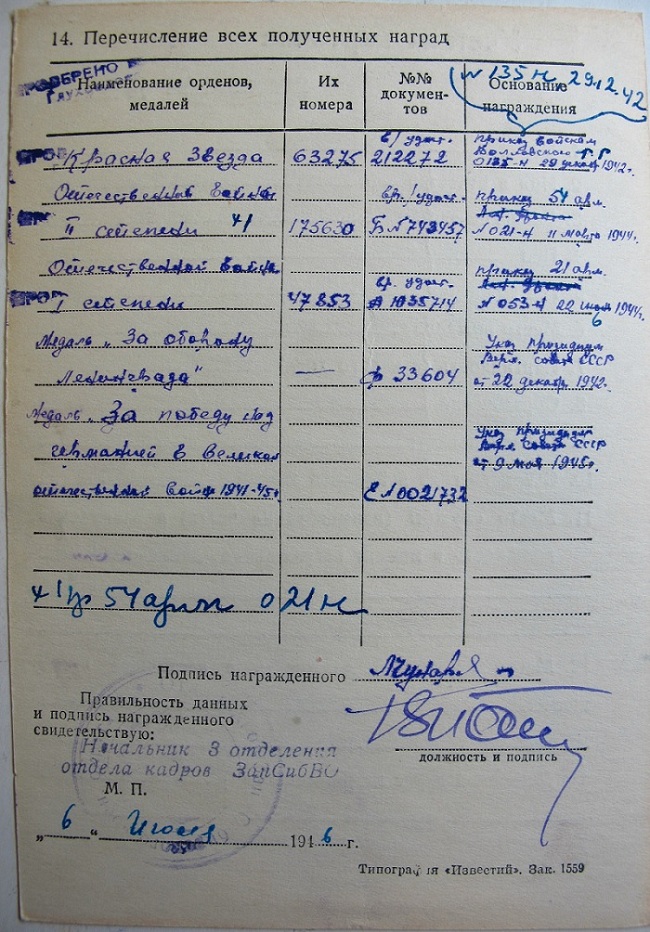 14. Перечисление всех полученных наград
ПРОВЕРЕНО
Наименование орденов, медалей
Их номера
№№ документов
Основание награждения
№ 135 н 29.12.42
Красная Звезда 63275 в/удост. 212272 приказ войскам Волховского
0135-н 29 декабр 1942г.
Отечественной войны вр. удост. приказ 54 арм.
II степени 41 175630 Б № 743457 № 021-н 11 марта 1944г.
Отечественной войны вр. удост. приказ 21 арм.
I степени 47853 1035714 № 053-н 22 6 1944г.
Медаль „За оборону Указ президиум
Ленинграда" — ф 33604 Верх. Совета СССР
от 22 декабр 1942г.
Медаль „За победу над Указ президиум
Германией в Великой Верх. Совета СССР
от 9 мая 1945г.
отечественной войне 1941-45г." Е № 0021732
54 арм 021н
Подпись награжденного
Правильность данных
и подпись награжденного
свидетельствую:
Начальник 3 отделения
отдела кадров ЗапСибВО
должность и подпись
М. П.
„6" Июля 1946 г.
Типография «Известий». Зак. 1559